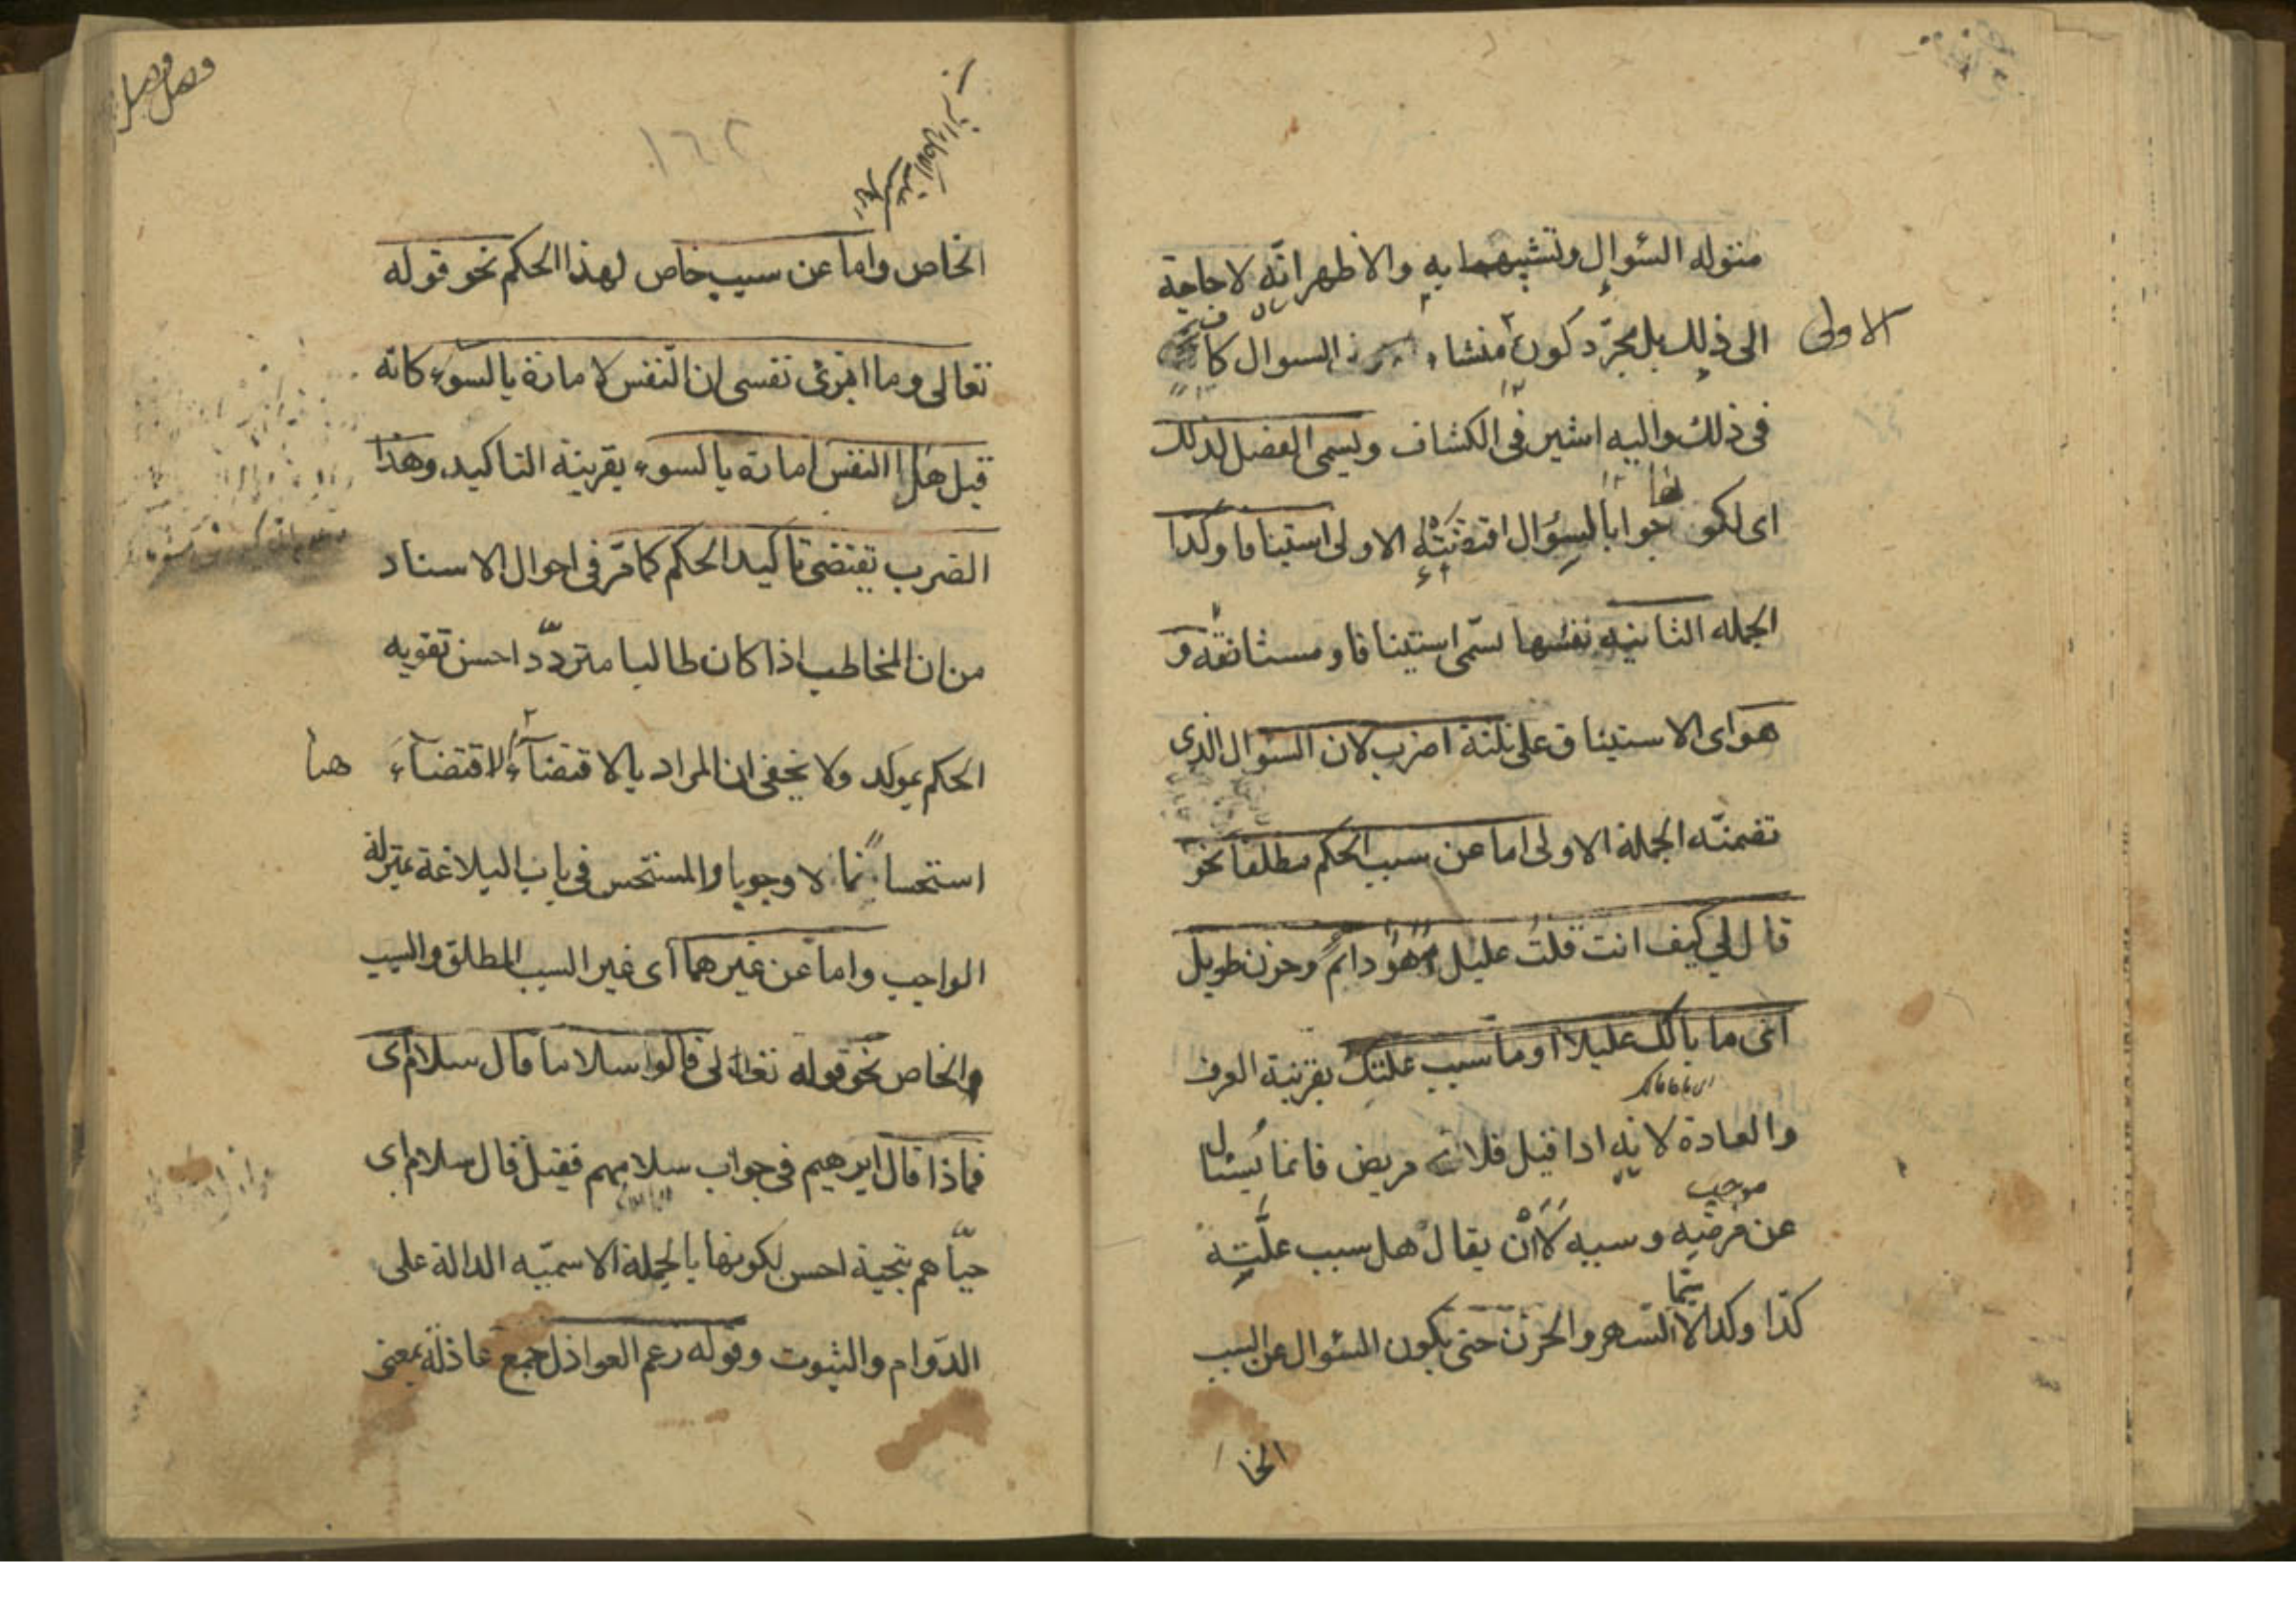 منزله السؤال وتشبيهها به والاظهر انه لا حاجة
الى ذلك بل مجرّد كون الاولى منشاء السوال كاف
فى ذلك واليه اشير فى الكشاف ويسمى الفصل لذلك
اى لكونه جوابا لسؤال اقتضته الاولى استينافا وكذا
الجمله الثانيه نفسها تسمّى استينافا ومستانفة و
هو اى الاستيناف على ثلثة اضرب لان السؤال الذى
تضمنّه الجملة الاولى اما عن سبب الحكم مطلقا نحو
قال لي كيف انت قلت عليل سهر دائم وحزن طويل
اى ما بالك عليلا او ما سبب علتك بقرينة العرف
والعادة لانه اذا قيل فلان مريض فانما يسئل
عن مرضه وسببه لا أن يقال هل سبب علّته
كذا وكذا لا سيّما السهر والحزن حتى يكون السؤال عن السبب
الخا
الخاص واما عن سبب خاص لهذا الحكم نحو قوله
تعالى وما ابرئ نفسى ان النّفس لامارة بالسوء كانّه
قيل هل النفس امارة بالسوء بقرينة التاكيد وهذا
الضرب تقتضى تاكيد الحكم كما مرّ فى احوال الاسناد
من ان المخاطب اذا كان طالبا متردّدا حسن تقويه
الحكم بموكد ولا يخفى ان المراد بالاقتضاء الاقتضاء هنا
استحسانا لا وجوبا والمستحسن فى باب البلاغة بمنزلة
الواجب واما عن غيرهما اى غير السبب المطلق والسبب
والخاص نحو قوله تعالى قالوا سلاما قال سلام اى
فماذا قال ابرهيم فى جواب سلامهم فقيل قال سلام اى
حيّاهم بتحية احسن لكونها بالجملة الاسميّه الدالة على
الدّوام والثبوت وقوله زعم العواذل جمع عاذلة بمعنى